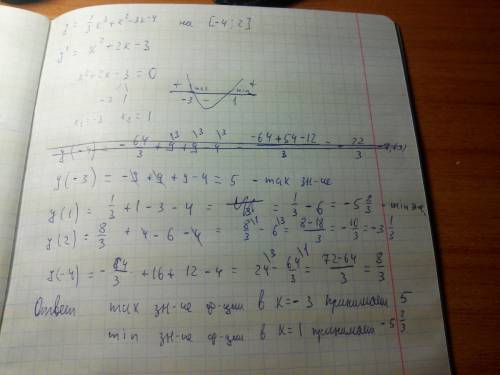 y = 1/3 x³ + x² - 3x - 4 на [-4; 2]
y' = x² + 2x - 3
x² + 2x - 3 = 0
+ max - min +
-3 1
-3 1
x₁ = -3 x₂ = 1
y(-4) = - 64/3 + 9 + 9 - 4 = (-64 + 54 - 12)/3 = - 22/3
y(-3) = -9 + 9 + 9 - 4 = 5 - max зн-ие
y(1) = 1/3 + 1 - 3 - 4 = = 1/3 - 6 = -5 2/3 - min зн.
y(2) = 8/3 + 4 - 6 - 4 = 8/3 - 6 = (8-18)/3 = -10/3 = -3 1/3
y(-4) = - 64/3 + 16 + 12 - 4 = 24 - 64/3 = (72-64)/3 = 8/3
Ответ max зн-ие ф-ции в x = -3 принимает 5
min зн-ие ф-ции в x = 1 принимает -5 2/3